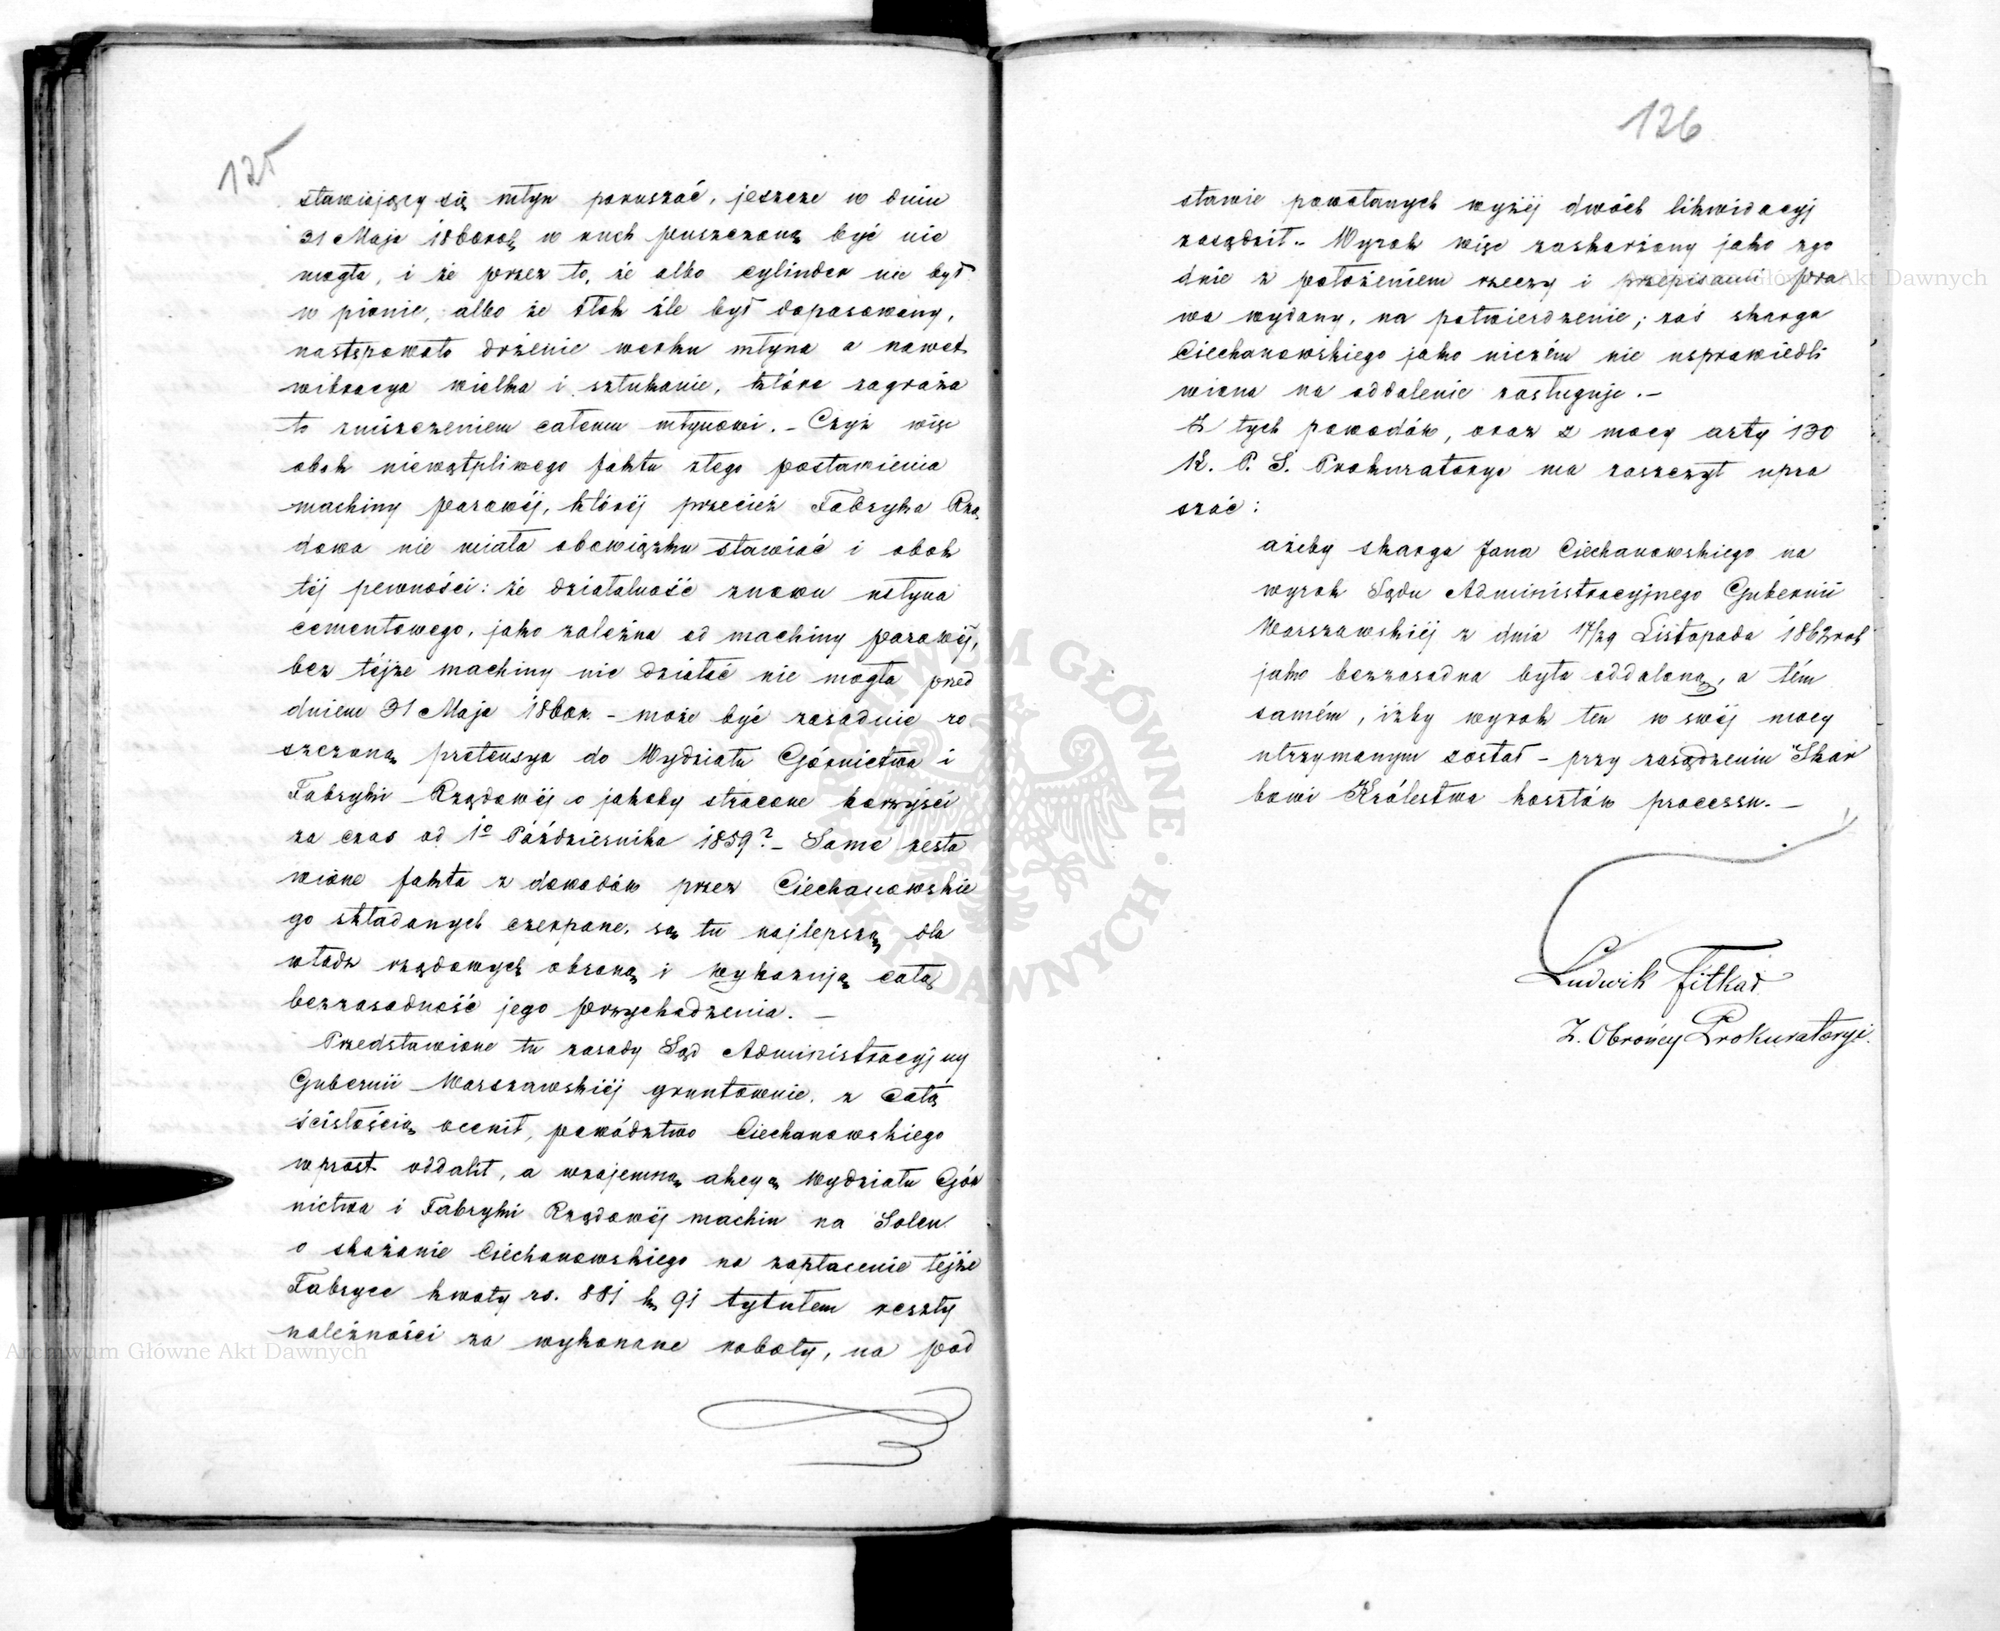 125
stawiający się młyn poruszać, jeszcze w dniu
31 Maja 1860 rok w ruch puszczoną być nie
mogła, i że przez to, że albo cylinder nie był
w pionie, albo że tłok źle był dopasowany,
następowało drżenie worku młyna a nawet
wibracya wielka i sztukanie, które zagraża
ło zniszczeniem całemu młynowi. – Czyż więc
obok niewątpliwego faktu złego postawienia
machiny parowéj, któréj przecież Fabryka Rzą
dowa nie miała obowiązku stawiać i obok
téj pewności: że działalność znowu młyna
cementowego, jako zależna od machiny parowéj,
bez téjże machiny nie działać nie mogła przed
dniem 31 Maja 1860 r. – może być zasadnie ro
szczoną pretensya do Wydziału Górnictwa i
Fabryki Rządowéj o jakoby stracone korzyści
za czas od 1o Października 1859? – Same zesta
wione fakta z dowodów przez Ciechanowskie
go składanych czerpane, są tu najlepszą dla
władz rządowych obroną i wykazują całą
bezzasadność jego przychodzenia. –
Przedstawione tu zasady Sąd Administracyjny
Gubernii Warszawskiéj gruntownie, z całą
ścisłością ocenił, powództwo Ciechanowskiego
wprost oddalił, a wzajemną akcyą Wydziału Gór
nictwa i Fabryki Rządowéj machin na Solcu
o skazanie Ciechanowskiego na zapłacenie téjże
Fabryce kwoty rs. 881 k. 91 tytułem reszty
należności za wykonane roboty, na pod
126
stawie powołanych wyżéj dwóch likwidacyj
zasądził. – Wyrok więc zaskarżony jako zgo
dnie z położeniem rzeczy i przepisami pra
wa wydany, na potwierdzenie; zaś skarga
Ciechanowskiego jako niczém nie usprawiedli
wiona na oddalenie zasługuje. –
Z tych powodów, oraz z mocy arty 130
K. P. S. Prokuratorya ma zaszczyt upra
szać:
ażeby skarga Jana Ciechanowskiego na
wyrok Sądu Administracyjnego Gubernii
Warszawskiéj z dnia 17/29 Listopada 1862 rok
jako bezzasadna była oddaloną, a tém
samém, iżby wyrok ten w swéj mocy
utrzymanym został – przy zasądzeniu Skar
bowi Królestwa kosztów processu. –
Ludwik Fitkał
Z. Obrońcy Prokuratoryi.
Archiwum Główne Akt Dawnych
Archiwum Główne Akt Dawnych
ARCHIWUM GŁÓWNE AKT DAWNYCH